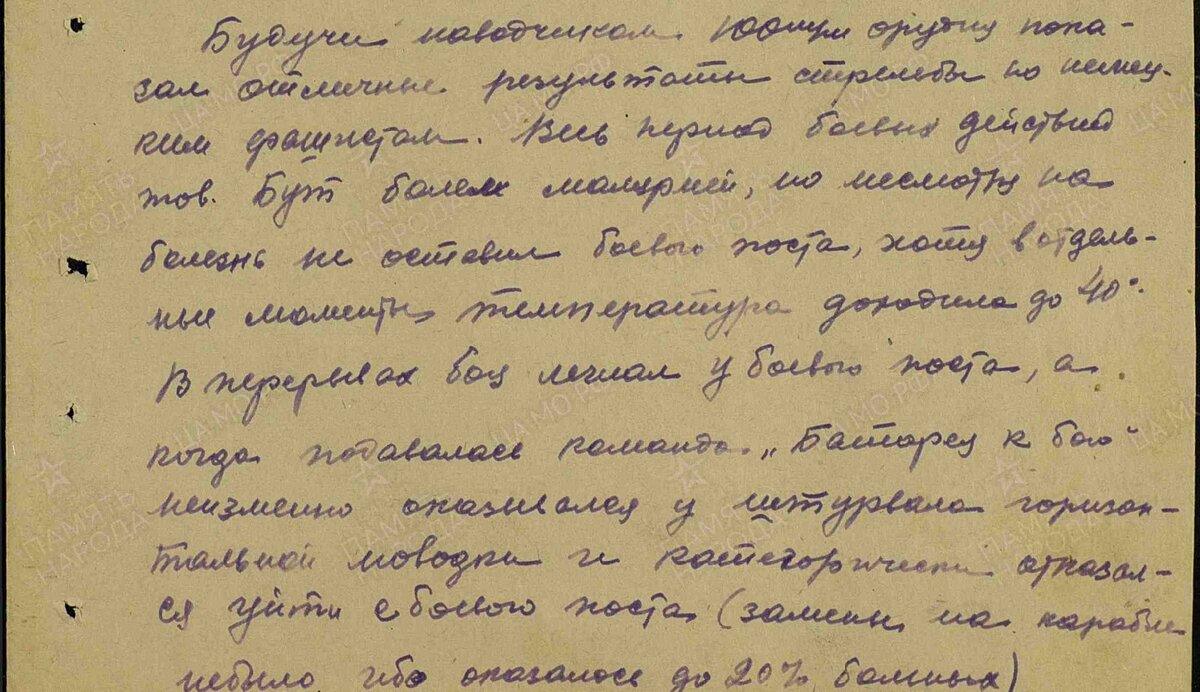 Будучи наводчиком 100мм орудия пока-
зал отличные результаты стрельбы по немец-
ким фашистам. Весь период боевых действий
тов. Бут болел малярией, но несмотря на
болезнь не оставил боевого поста, хотя в отдель-
ные моменты температура доходила до 40°.
В перерывах боя лежал у боевого поста, а
когда подавалась команда „Батарея к бою"
неизменно оказывался у штурвала горизон-
тальной наводки и категорически отказал-
ся уйти с боевого поста (замены на корабле
небыло ибо оказалось до 20% больных)